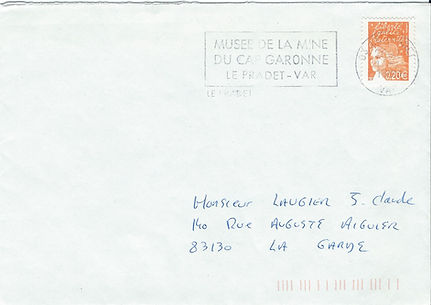 MUSEE DE LA MINE
DU CAP GARONNE
LE PRADET-VAR
LE PRADET
0,20€
VAR
Monsieur LAUGIER J. Claude
140 RUE AUGUSTE AIGUIER
83130 LA GARDE